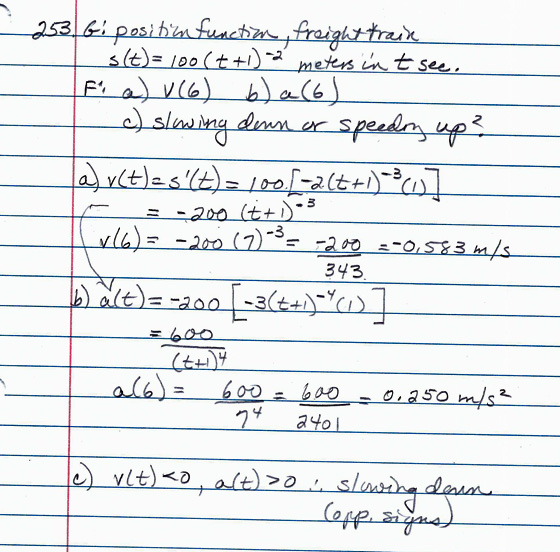 253. G: position function, freight train
s(t) = 100(t+1)⁻² meters in t sec.
F: a) v(6) b) a(6)
c) slowing down or speeding up?
a) v(t) = s'(t) = 100 [-2(t+1)⁻³(1)]
= -200 (t+1)⁻³
v(6) = -200 (7)⁻³ = -200/343 = -0.583 m/s
b) a(t) = -200 [-3(t+1)⁻⁴(1)]
= 600/(t+1)⁴
a(6) = 600/7⁴ = 600/2401 = 0.250 m/s²
c) v(t) < 0, a(t) > 0 ∴ slowing down
(opp. signs)